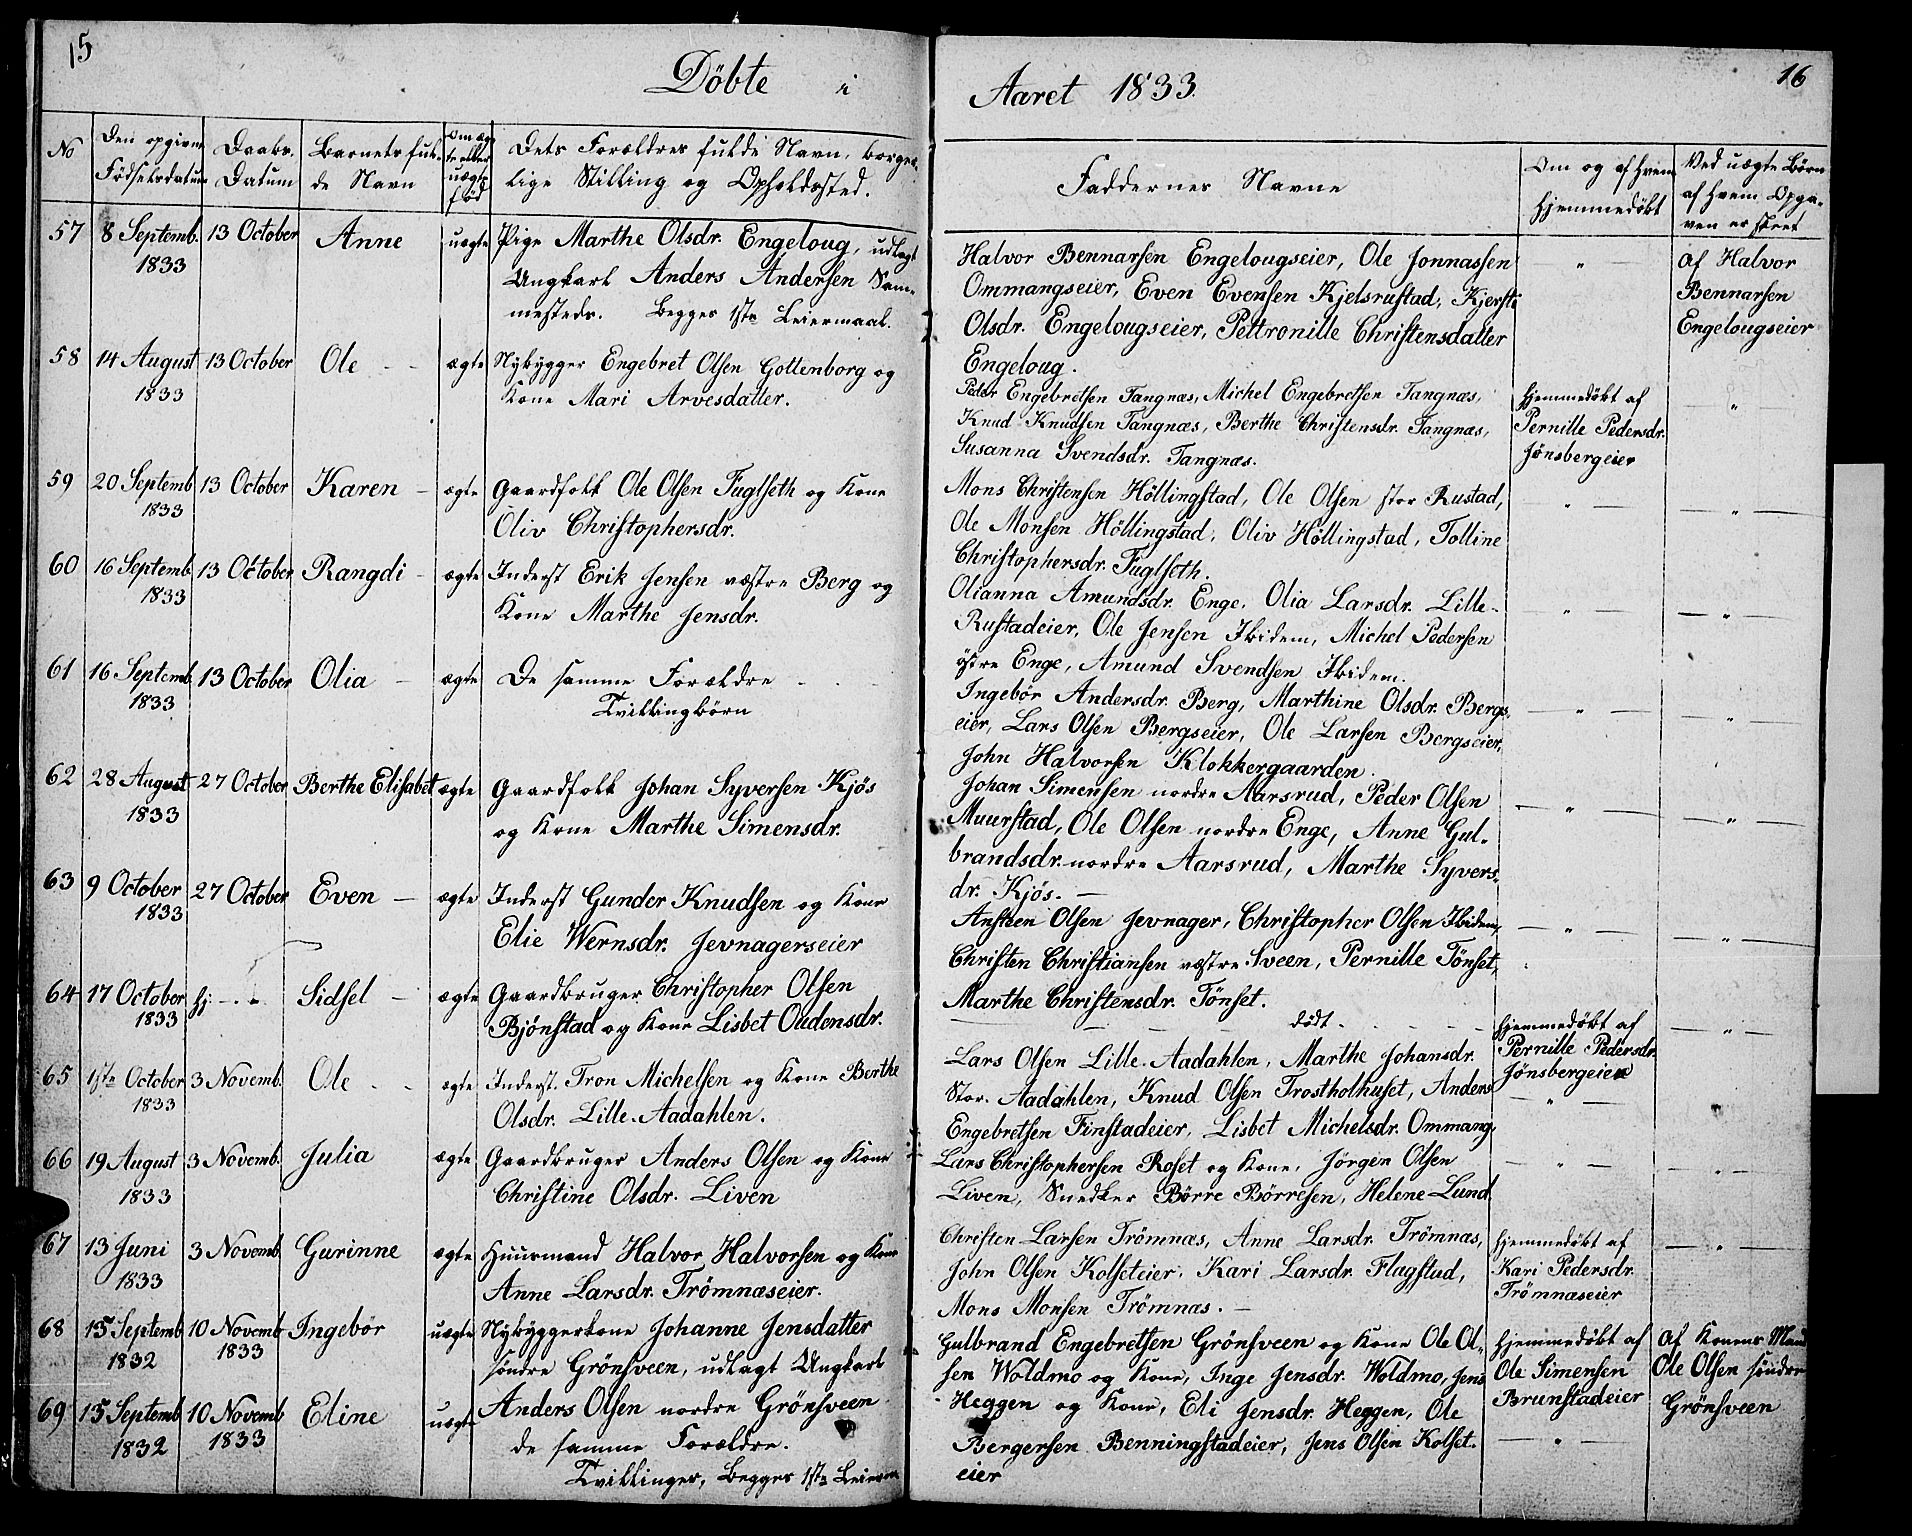 15
Döbte i
No
Den opgivne Födselsdatum
Daabs. Datum
Barnets fulde Navn
Om ægte eller uægte föd
Dets Forældres fulde Navn, borgerlige Stilling og Opholdssted.
57 8 Septemb. 1833 13 October Anne uægte Pige Marthe Olsdr. Engeloug, udlagt
Ungkarl Anders Andersen Sam-
mesteds. Begges 1ste Leiermaal.
58 14 August 1833 13 October Ole ægte Nybygger Engebret Olsen Gottenborg og
Kone Mari Arvesdatter.
59 20 Septemb 1833 13 October Karen ægte Gaardfolk Ole Olsen Fuglseth og Kone
Oliv Christophersdr.
60 16 Septemb 1833 13 October Rangdi ægte Inderst Erik Jensen væstre Berg og
Kone Marthe Jensdr.
61 16 Septemb. 1833 13 October Olia ægte De samme Forældre
Tvillingbörn
62 28 August 1833 27 October Berthe Elisabet ægte Gaardfolk Johan Syversen Kjös
og Kone Marthe Simensdr.
63 9 October 1833 27 October Even ægte Inderst Gunder Knudsen og Kone
Elie Wernsdr. Jevnagerseier
64 17 October 1833 hj Sidsel ægte Gaardbruger Christopher Olsen
Bjönstad og Kone Lisbet Oudensdr.
65 1ste October 1833 3 Novemb. Ole ægte Inderst. Tron Michelsen og Kone Berthe
Olsdr. Lille-Aadahlen.
66 19 August 1833 3 Novemb. Julia ægte Gaardbruger Anders Olsen og Kone
Christine Olsdr. Liven
67 13 Juni 1833 3 Novemb. Gurinne ægte Huusmand Halvor Halvorsen og Kone
Anne Larsdr. Trömnæseier.
68 15 Septemb 1832 10 Novemb 1833 Ingebör uægte Nybyggerkone Johanne Jensdatter
söndre Grönsveen, udlagt Ungkarl
Anders Olsen nordre Grönsveen
69 15 Septemb 1832 10 Novemb 1833 Eline uægte
de samme Forældre.
Tvillinger, Begges 1ste
Aaret 1833.
16
Faddernes Navne
Om og af hvem hjemmedöbt
Ved uægte Börn af hvem Opgaven er skeet
Halvor Bennarsen Engelougseier, Ole Jonnassen
Ommangseier, Even Evensen Kjelsrustad, Kjersti
Olsdr. Engelougseier, Pettronille Christensdatter
Engeloug.
af Halvor
Bennarsen
Engelougseier
Peder Engebretsen Tangnæs, Michel Engebretsen Tangnæs,
Knud Knudsen Tangnæs, Berthe Christensdr. Tangnæs,
Susanna Svendsdr. Tangnæs.
hjemmedöbt af
Pernille Pedersdr.
Jönsbergeier
Mons Christensen Höllingstad, Ole Olsen stor Rustad,
Ole Monsen Höllingstad, Oliv Höllingstad, Tolline
Christophersdr. Fuglseth.
Olianna Amundsdr. Enge. Olia Larsdr. Lille-
Rustadeier, Ole Jensen Ibidem, Michel Pedersen
östre Enge, Amund Svendsen Ibidem.
Ingebör Andersdr. Berg, Marthine Olsdr. Bergs-
eier, Lars Olsen Bergseier, Ole Larsen Bergseier,
John Halvorsen Klokkergaarden.
Johan Simensen nordre Aarsrud, Peder Olsen
Muurstad, Ole Olsen nordre Enge, Anne Gul-
brandsdr. nordre Aarsrud, Marthe Syvers-
dr. Kjös.
Ansteen Olsen Jevnager, Christopher Olsen Ibidem,
Christen Christiansen væstre Sveen, Pernille Tönset,
Marthe Christensdr. Tönset.
dödt
hjemmedöbt af
Pernille Pedersdr.
Jönsbergeier
Lars Olsen Lille-Aadahlen, Marthe Johansdr.
Stor-Aadahlen, Knud Olsen Trostholhuset, Anders
Engebretsen Finstadeier, Lisbet Michelsdr. Ommang,
Lars Christophersen Roset og Kone, Jörgen Olsen
Liven, Snedker Börre Börresen, Helene Lund
Christen Larsen Trömnæs, Anne Larsdr. Trömnæs,
John Olsen Kolseteier, Kari Larsdr. Flagstad,
Mons Monsen Trömnæs.
hjemmedöbt af
Kari Pedersdr.
Trömnæseier
Gulbrand Engebretsen Grönsveen og Kone Ole Ol-
sen Woldmo og Kone, Inge Jensdr. Woldmo, Jens
Heggen og Kone, Eli Jensdr. Heggen, Ole
Bergersen Benningstadeier, Jens Olsen Kolset-
eier
hjemmedöbt af
Ole Simensen
Brunstadeier
af Konens Mand
Ole Olsen söndre
Grönsveen